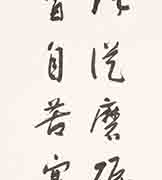 從磨
香自苦寒